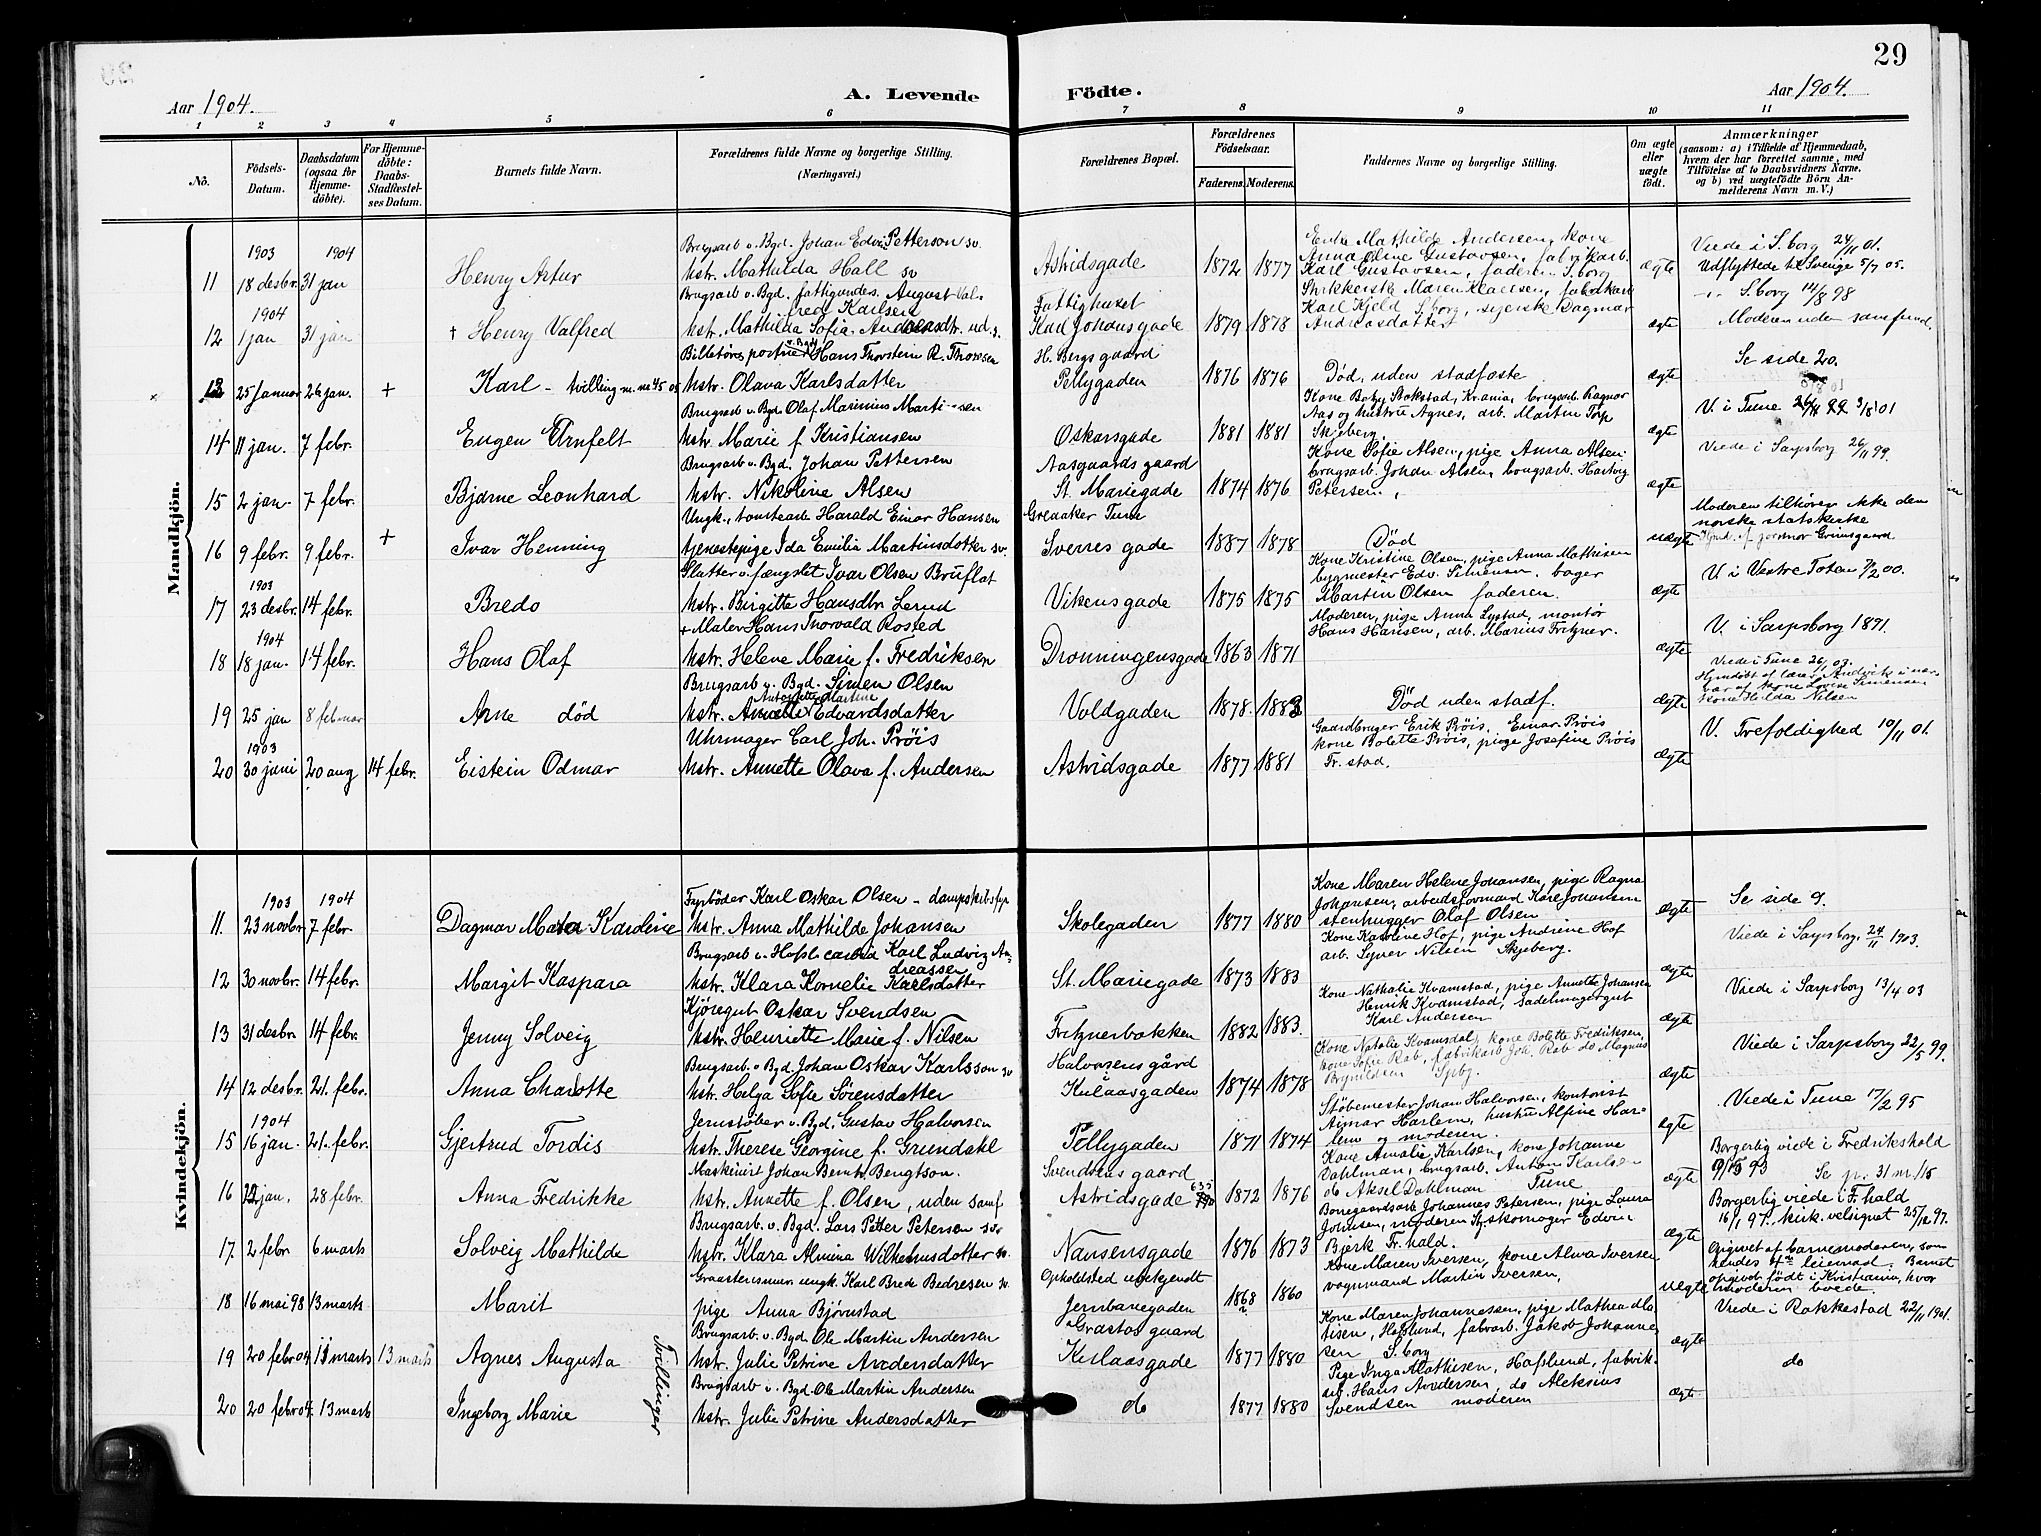 29
Aar 1904.
A. Levende
Födte.
Aar 1904.
1 2 3 4 5 6 7 8 9 10 11
No.
Födsels-Datum.
Daabsdatum (ogsaa for Hjemmedöbte).
For Hjemmedöbte: Daabs-Stadfestelses Datum.
Barnets fulde Navn.
Forældrenes fulde Navne og borgerlige Stilling. (Næringsvei.)
Forældrenes Bopæl.
Forældrenes Födselsaar.
Faderens. Moderens.
Faddernes Navne og borgerlige Stilling.
Om ægte eller uægte födt.
Anmærkninger
(saasom: a) i Tilfælde af Hjemmedaab, hvem der har forrettet samme, med Tilföielse af to Daabsvidners Navne. og b) ved uægtefödte Börn Anmelderens Navn m. V.)
Mandkjön.
1903 1904
Brugsarb v. Bgd. Johan Edv. Petterson sv.
11 18 desbr. 31 jan Henry Artur
hstr. Mathilda Hall sv
Astridsgade 1872 1877
Enke Mathilde Andersen, kone
Anna Oline Gustavsen, fabrikarb.
Karl Gustavsen, faderen S.borg
ægte
Viede i S.borg 24/11 01.
Udflyttede til Sverige 5/7 05.
1904
Brugsarb v. Bgd. fattigunders. August Valfred Karlsen
12 1 jan 31 jan + Henry Valfred
hstr. Mathilda Sofia Andersdtr. ud. s.
Fattighuset
Karl Johansgade 1879 1878
Strikkerske Maren Klausen, fabrikarb
Karl Kjeld S.borg, syerske Dagmar
Andreasdatter
ægte
S.borg 14/8 98
Moderen uden samfund.
Billetöresportner v. Bgd Hans Thorstein R. Thoresen
13 25 Januar 26 jan. + Karl - tvilling m. nr. 45 05
hstr. Olava Karlsdatter
H. Bergs gaard
Pellygaden 1876 1876
Död, uden stadfæste
ægte
Se side 20.
Brugsarb v. Bgd. Olaf Marinius Martinsen
14 11 jan. 7 febr. Eugen Arnfelt
hstr. Marie f. Kristiansen
Oskarsgade 1881 1881
Kone Boby Stokstad, Krania, brugsarb. Ragnar
Aas og hustru Agnes, arb. Martin Torp
Skjeberg
ægte
V. i Tune 3/8 01
Brugsarb v. Bgd. Johan Pettersen
15 2 jan. 7 febr. Bjarne Leonhard
hstr. Nikoline Alsen
Aasgaards gaard
St. Mariegade 1874 1876
Kone Sofie Alsen, pige Anna Alsen
brugsarb. Johan Alsen, brugsarb. Hartvig
Petersen.
ægte
Viede i Sarpsborg 26/11 99.
Ungk., tomtearb Harald Einar Hansen
16 9 febr. 9 febr. + Ivar Henning
tjenestepige Ida Emilia Martinsdotter sv.
Greaaker Tune
Sverres gade 1887 1878
Död
uægte
Moderen tilhörer ikke den
norske statskirke
Hjmd. af jormor Grimsgaard
1903
Slutter v. fængslet Ivar Olsen Bruflat
17 23 desbr. 14 febr. Bredo
hstr. Birgitte Hansdtr. Lerud
Vikensgade 1875 1875
Kone Kristine Olsen, pige Anna Mathisen
bygmester Edv. Simensen, bager
Martin Olsen faderen.
ægte
V. i Vestre Toten 7/2 00.
1904
+ Maler Hans Thorvald Rosted
18 18 jan. 14 febr. Hans Olaf
hstr. Helene Marie f. Fredriksen
Dronningensgade 1863 1871
Moderen, pige Anna Lystad, montör
Hans Hansen, arb. Marius Fritzner.
ægte
V. i Sarpsborg 1871.
Brugsarb v. Bgd. Simen Olsen
19 25 jan 8 februar Arne död
hstr. Annette Edvardsdatter
Voldgaden 1878. 1882
Död uden stadf.
ægte
Viede i Tune 26/1 03.
Hjmdöbt af lærer Andvik i nær-
vær af kone Lovise Simensen
kone Hilda Nilsen
1903
Uhrmager Carl Joh. Pröis
20 30 juni 20 aug 14 febr. Eistein Odmar
hstr. Annette Olava f. Andersen
Astridsgade 1877 1881
Gaardbruger Erik Pröis, Einar Pröis
kone Bolette Pröis, pige Josefine Pröis
Fr.stad.
ægte
V. Trefoldighed 10/11 01.
Kvindekjön.
1903 1904
Fyrböder Karl Oskar Olsen - dampskibsfyr
11. 23 novbr. 7 febr. Dagmar Marta Karoline
hstr. Anna Mathilde Johansen
Skolegaden 1877 1880
Kone Maren Helene Johansen, pige Ragna
Johansen, arbeidsformand Kare Johansen
stenhugger Olaf Olsen
ægte
Se side 9.
Brugsarb v. Hafsl. carbid Karl Ludvig Andreassen
12 30 novbr. 14 febr. Margit Kaspara
hstr. Klara Kornelie Karlsdatter
St. Mariegade 1873 1883
Kone Karoline Hof, pige Andrine Hof
arb. Syver Nilsen Skjeberg.
ægte
Viede i Sarpsborg. 24/11 1903.
Kjöregut Oskar Svendsen
13 31 desbr. 14 febr. Jenny Solveig
hstr. Henriette Marie f. Nilsen
Fritznerbakken 1882 1883.
Kone Nathalie Kvamstad, pige Annette Johansen
Henrik Kvamstad, Sadelmagergut
Karl Andersen
ægte
Viede i Sarpsborg 13/4 03
Brugsarb. v Bgd Johan Oskar Karlsson sv
14 12 desbr. 21. febr. Anna Charlotte
hstr. Helga Sofie Sörensdatter
Halvorsens gård
i
Kulaasgaden 1874 1878
Kone Natalie Kvamsdal, kone Bolette Fredriksen,
kone Sofie Rab, fabrikarb. Joh. Rab do Magnus
Brynildsen Spbg.
ægte
Viede i Sarpsborg 22/5 99.
1904
Jernstöber v. Bgd. Gustav Halvorsen
15 16 jan. 21. febr. Gjertrud Tordis
hstr. Therese Georgine f. Grundahl
Pellygaden 1871 1874
Stöbemester Johan Halvorsen, kontorist
Aimar Harlem, hustru Alfine Har-
lem og moderen.
ægte
Viede i Tune 17/2 95
Maskinist Johan Bernt Bengtson.
16 22 jan. 28 febr. Anna Fredrikke
hstr. Annette f. Olsen, uden samf
Svendsens gaard
Astridsgade 635 1872 1876
Kone Amalie Karlsen, kone Johanne
Dahlman, brugsarb. Anton Karlsen
do Aksel Dahlman Tune
ægte
Borgerlig viede i Fredrikshald
93 Se p. 31 nr. 16
Brugsarb. v. Bgd. Lars Petter Petersen sv
17. 2 febr. 6 marts Solveig Mathilde
hstr. Klara Almina Wilhelmsdotter sv.
Nansensgade 1876 1873
Bonegaardsarb Johannes Petersen, pige Laura
Johnsen, moderen Sp. skomager Edvin
Bjerk Fr.hald.
ægte
Borgerlig viede i F.hald
16/1 97. kirk. velsignet 25/12 97.
Graastensmur. ungk. Karl Brede Bedresen sv.
18 16 mai 98 13 marts Marit
pige Anna Björnstad
Opholdsted ubekjendt
Jernbanegaden 1868 1860
Kone Maren Iversen, kone Alma Iversen
vognmand Martin Iversen,
uægte
Opgivet af barnemoderen, som
hendes 4de leiermaal. Barnet
opgivet födt i Kristiania, hvor
moderen boede.
Brugsarb. v. Bgd Ole Martin Andersen
19 20 febr 04 11 marts 13 marts Agnes Augusta
hstr. Julie Petrine Andersdatter
Grastos gaard
Kulaasgade 1877 1880
Kone Maren Johannessen, pige Mathea Ma-
tisen, Hafslund, fabrarb. Jakob Johannes-
sen S.borg
ægte
Viede i Rakkestad 22/11 1901.
Tvillinger
Brugsarb v. Bgd. Ole Martin Andersen
20 20 febr 04. 13 marts Ingeborg Marie
hstr. Julie Petrine Andersdatter
do 1877 1880
Pige Inga Mathisen, Hafslund, fabrik-
arb. Hans Andersen, do Aleksius
Svendsen moderen
ægte
do